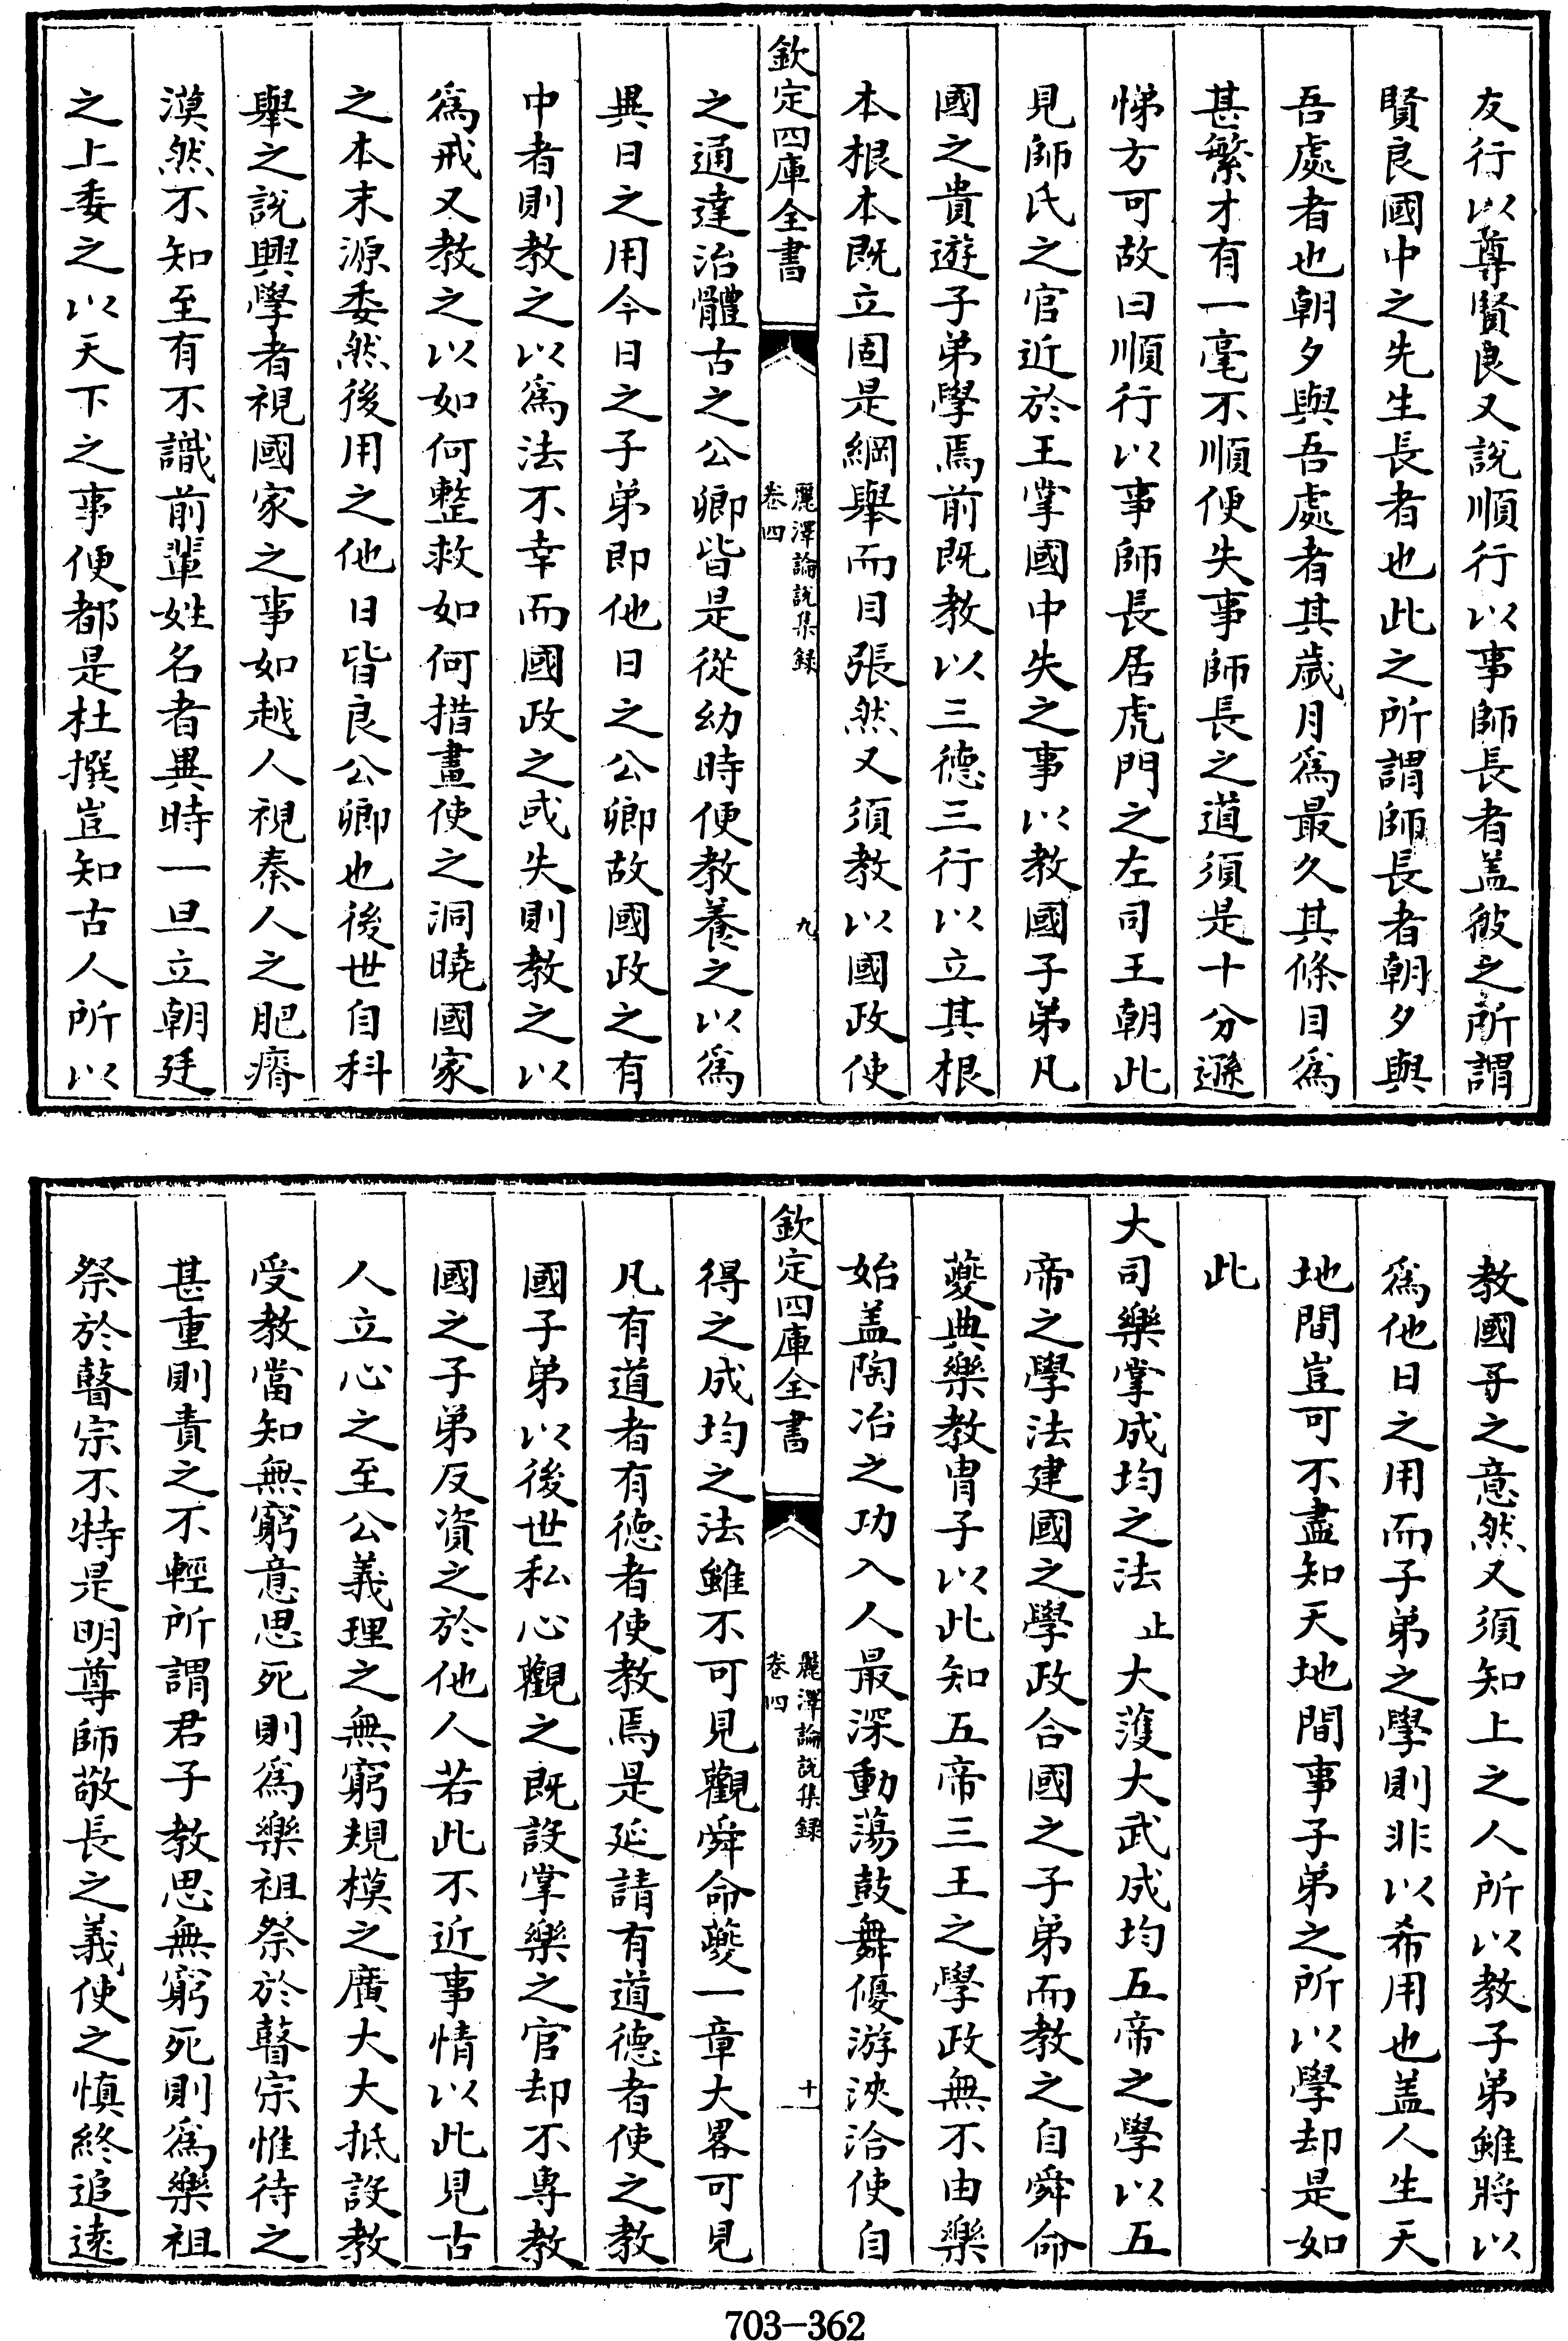 友行以尊賢良又說順行以事師長者盖彼之所謂
賢良國中之先生長者也此之所謂師長者朝夕與
吾處者也朝夕與吾處者其歲月為最久其條目為
甚繁才有一毫不順便失事師長之道須是十分遜
悌方可故曰順行以事師長居虎門之左司王朝此
見師氏之官近於王掌國中失之事以教國子弟凡
國之貴遊子弟學焉前既教以三德三行以立其根
本根本既立固是綱舉而目張然又須教以國政使
欽定四庫全書
麗澤論說集録
卷四
九
之通達治體古之公卿皆是從幼時便教養之以為
異日之用今日之子弟即他日之公卿故國政之有
中者則教之以為法不幸而國政之或失則教之以
為戒又教之以如何整救如何措畫使之洞曉國家
之本末源委然後用之他日皆良公卿也後世自科
舉之說興學者視國家之事如越人視秦人之肥瘠
漠然不知至有不識前輩姓名者異時一旦立朝廷
之上委之以天下之事便都是杜撰豈知古人所以
教國子之意然又須知上之人所以教子弟雖將以
為他日之用而子弟之學則非以希用也盖人生天
地間豈可不盡知天地間事子弟之所以學却是如
此
大司樂掌成均之法 止大濩大武成均五帝之學以五
帝之學法建國之學政合國之子弟而教之自舜命
夔典樂教胄子以此知五帝三王之學政無不由樂
始盖陶冶之功入人最深動蕩鼓舞優游浹洽使自
欽定四庫全書
麗澤論說集録
卷四
十
得之成均之法雖不可見觀舜命夔一章大畧可見
凡有道者有德者使教焉是延請有道德者使之教
國子弟以後世私心觀之既設掌樂之官却不專教
國之子弟反資之於他人若此不近事情以此見古
人立心之至公義理之無窮規模之廣大大抵設教
受教當知無窮意思死則為樂祖祭於瞽宗惟待之
甚重則責之不輕所謂君子教思無窮死則為樂祖
祭於瞽宗不特是明尊師敬長之義使之慎終追逺
703-362